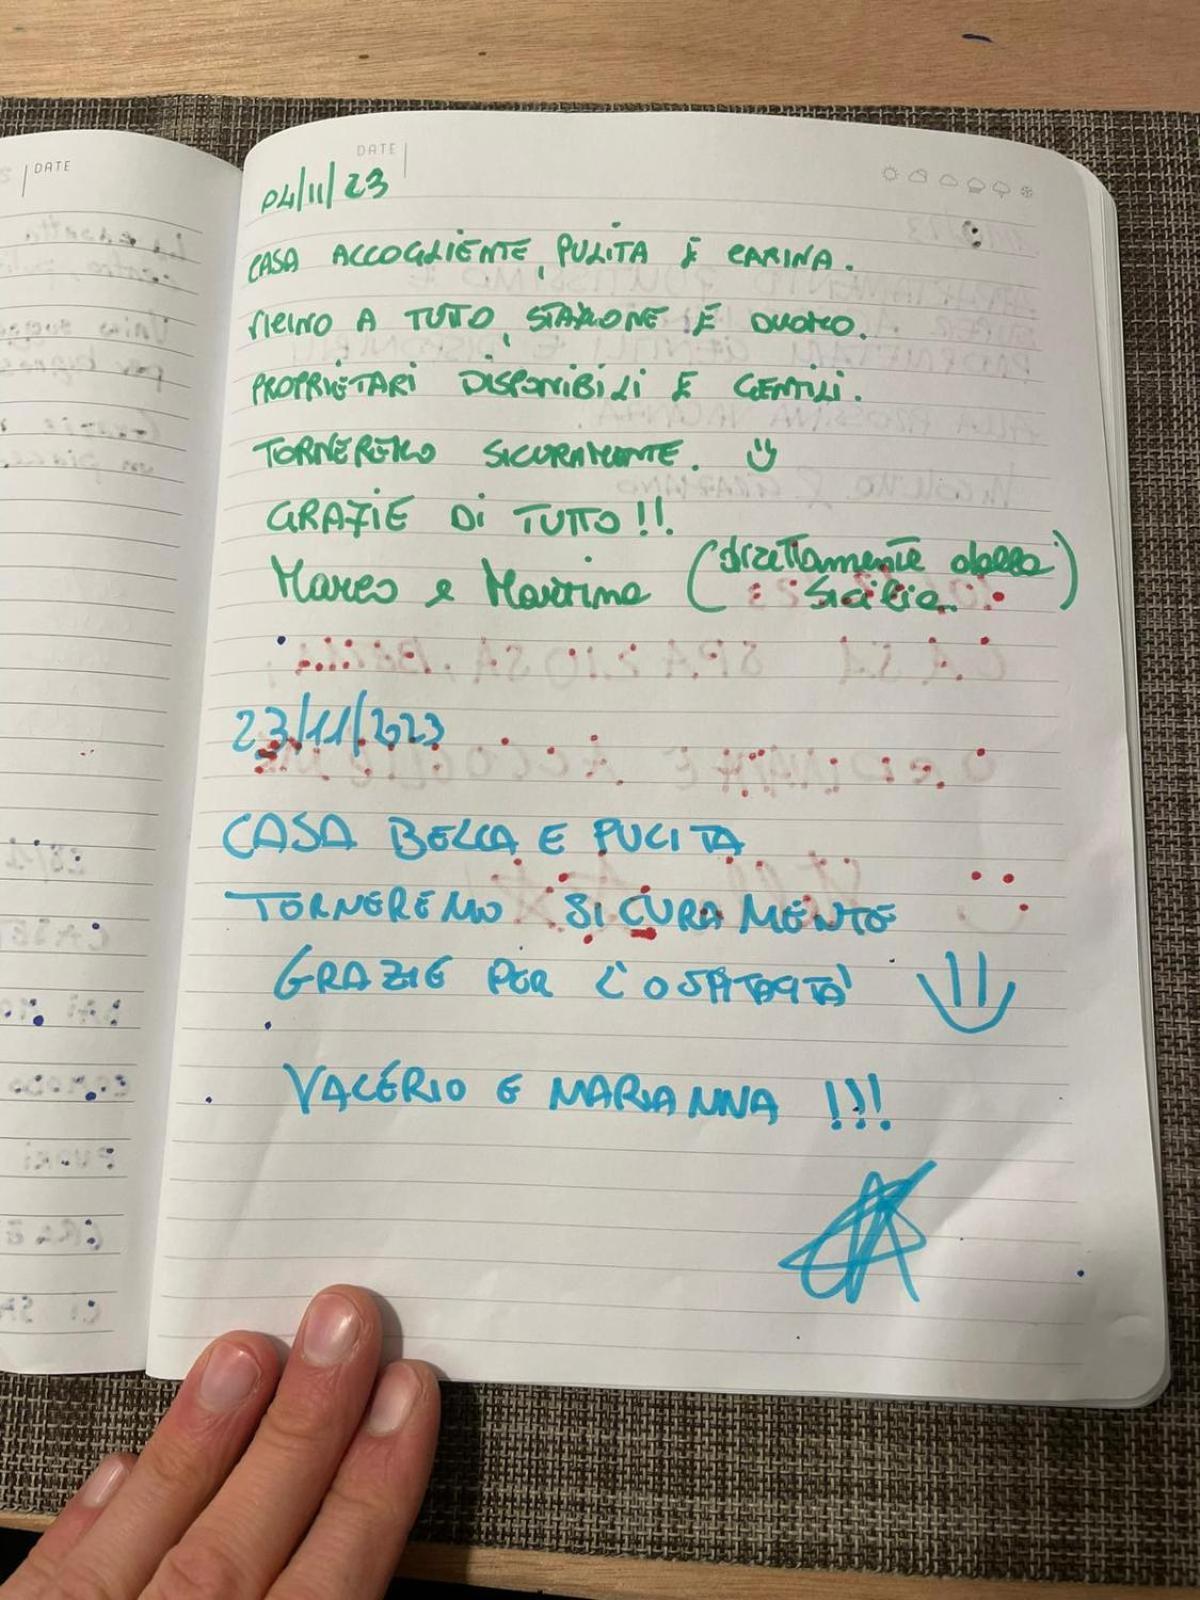 DATE
DATE
04/11/23
CASA ACCOGLIENTE, PULITA E CARINA.
VICINO A TUTTO, STAZIONE E DUOMO.
PROPRIETARI DISPONIBILI E GENTILI.
TORNEREMO SICURAMENTE.
GRAZIE DI TUTTO!!
Marco e Martina (direttamente dalla
Sicilia)
23/11/2023
CASA BELLA E PULITA
TORNEREMO SICURAMENTE
GRAZIE PER L'OSPITALITÀ
VALERIO E MARIANNA !!!